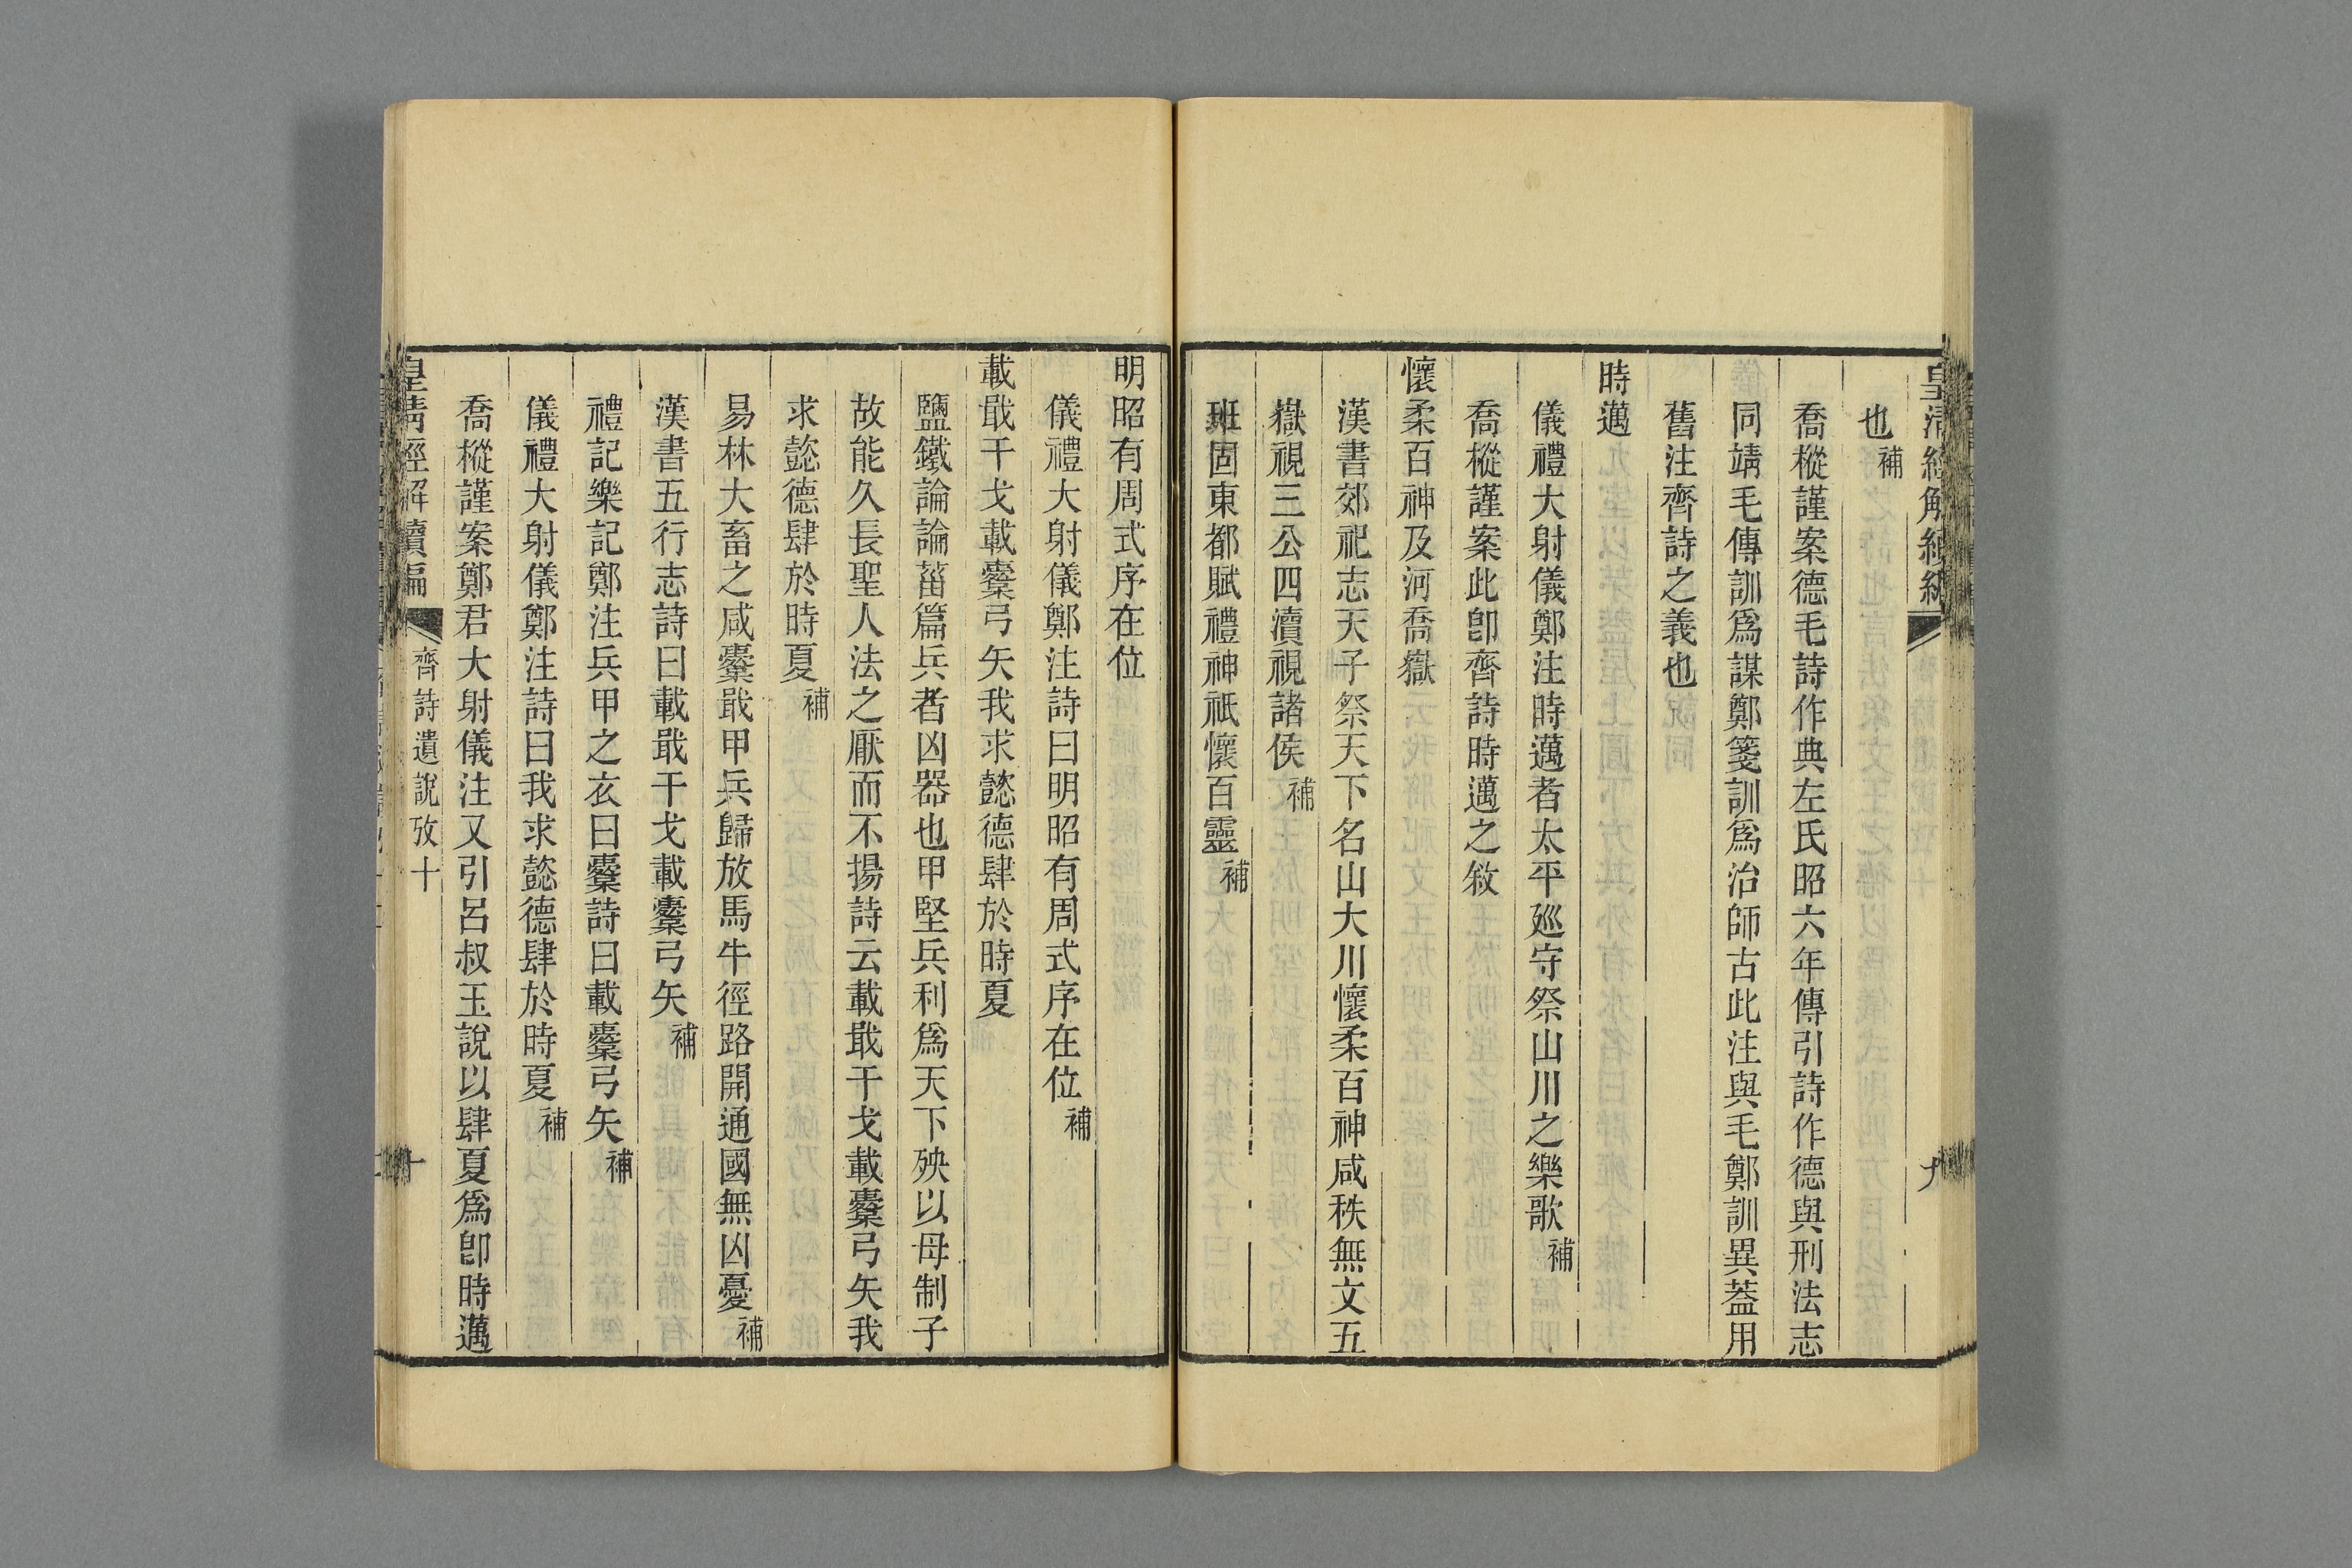 皇清經解續編
九
也補
喬樅謹案德毛詩作典左氏昭六年傳引詩作德與刑法志
同靖毛傳訓爲謀鄭箋訓爲治師古此注與毛鄭訓異葢用
舊注齊詩之義也
時邁
儀禮大射儀鄭注時邁者太平廵守祭山川之樂歌補
喬樅謹案此卽齊詩時邁之敘
懷柔百神及河喬嶽
漢書郊祀志天子祭天下名山大川懷柔百神咸秩無文五
嶽視三公四瀆視諸侯補
班固東都賦禮神祇懷百靈補
明昭有周式序在位
儀禮大射儀鄭注詩曰明昭有周式序在位補
載戢干戈載櫜弓矢我求懿德肆於時夏
鹽鐵論論菑篇兵者凶器也甲堅兵利爲天下殃以母制子
故能久長聖人法之厭而不揚詩云載戢干戈載櫜弓矢我
求懿德肆於時夏補
易林大畜之咸櫜戢甲兵歸放馬牛徑路開通國無凶憂補
漢書五行志詩曰載戢干戈載櫜弓矢補
禮記樂記鄭注兵甲之衣曰櫜詩曰載櫜弓矢補
儀禮大射儀鄭注詩曰我求懿德肆於時夏補
喬樅謹案鄭君大射儀注又引呂叔玉說以肆夏爲卽時邁
皇清經解續編
齊詩遺說攷十
十